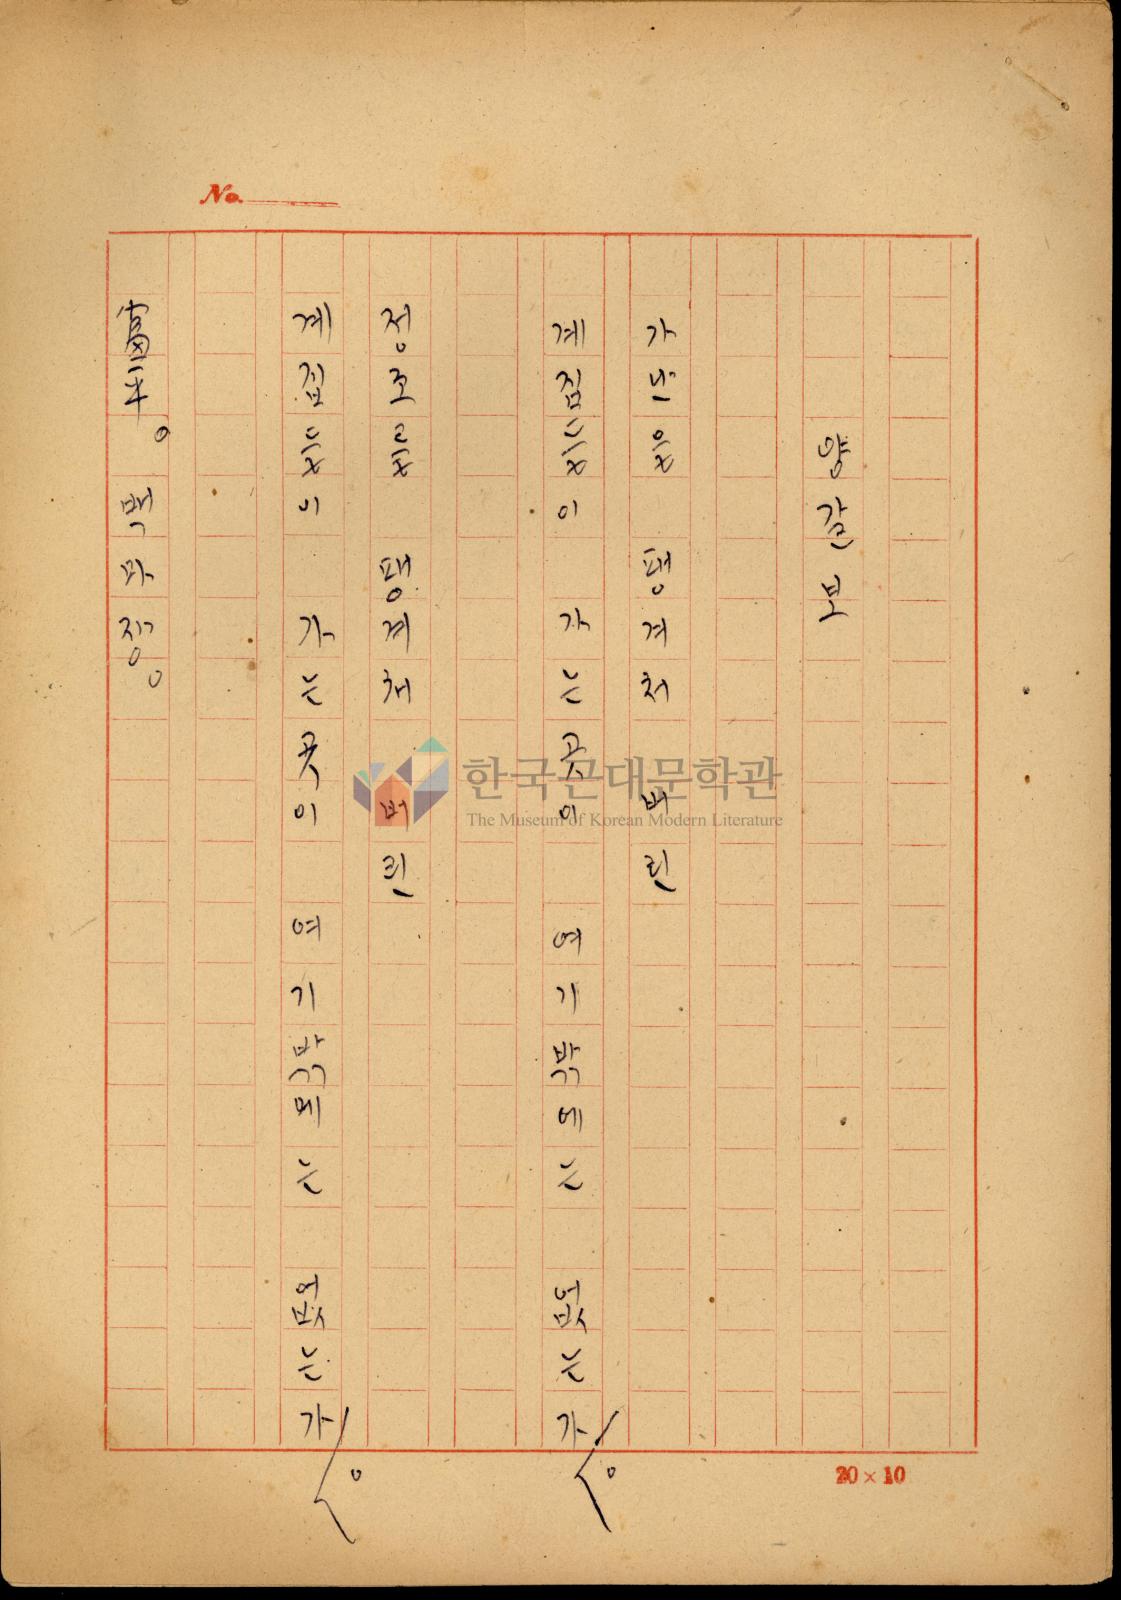 No.
양갈보
가난을 팽겨처 버린
계집들이 가는곳이 여기밖에는 없는가。
정조를 팽겨처 버린
계집들이 가는곳이 여기밖에는 없는가。
富平。 백마장。
한국근대문학관
The Museum of Korean Modern Literature
20×10